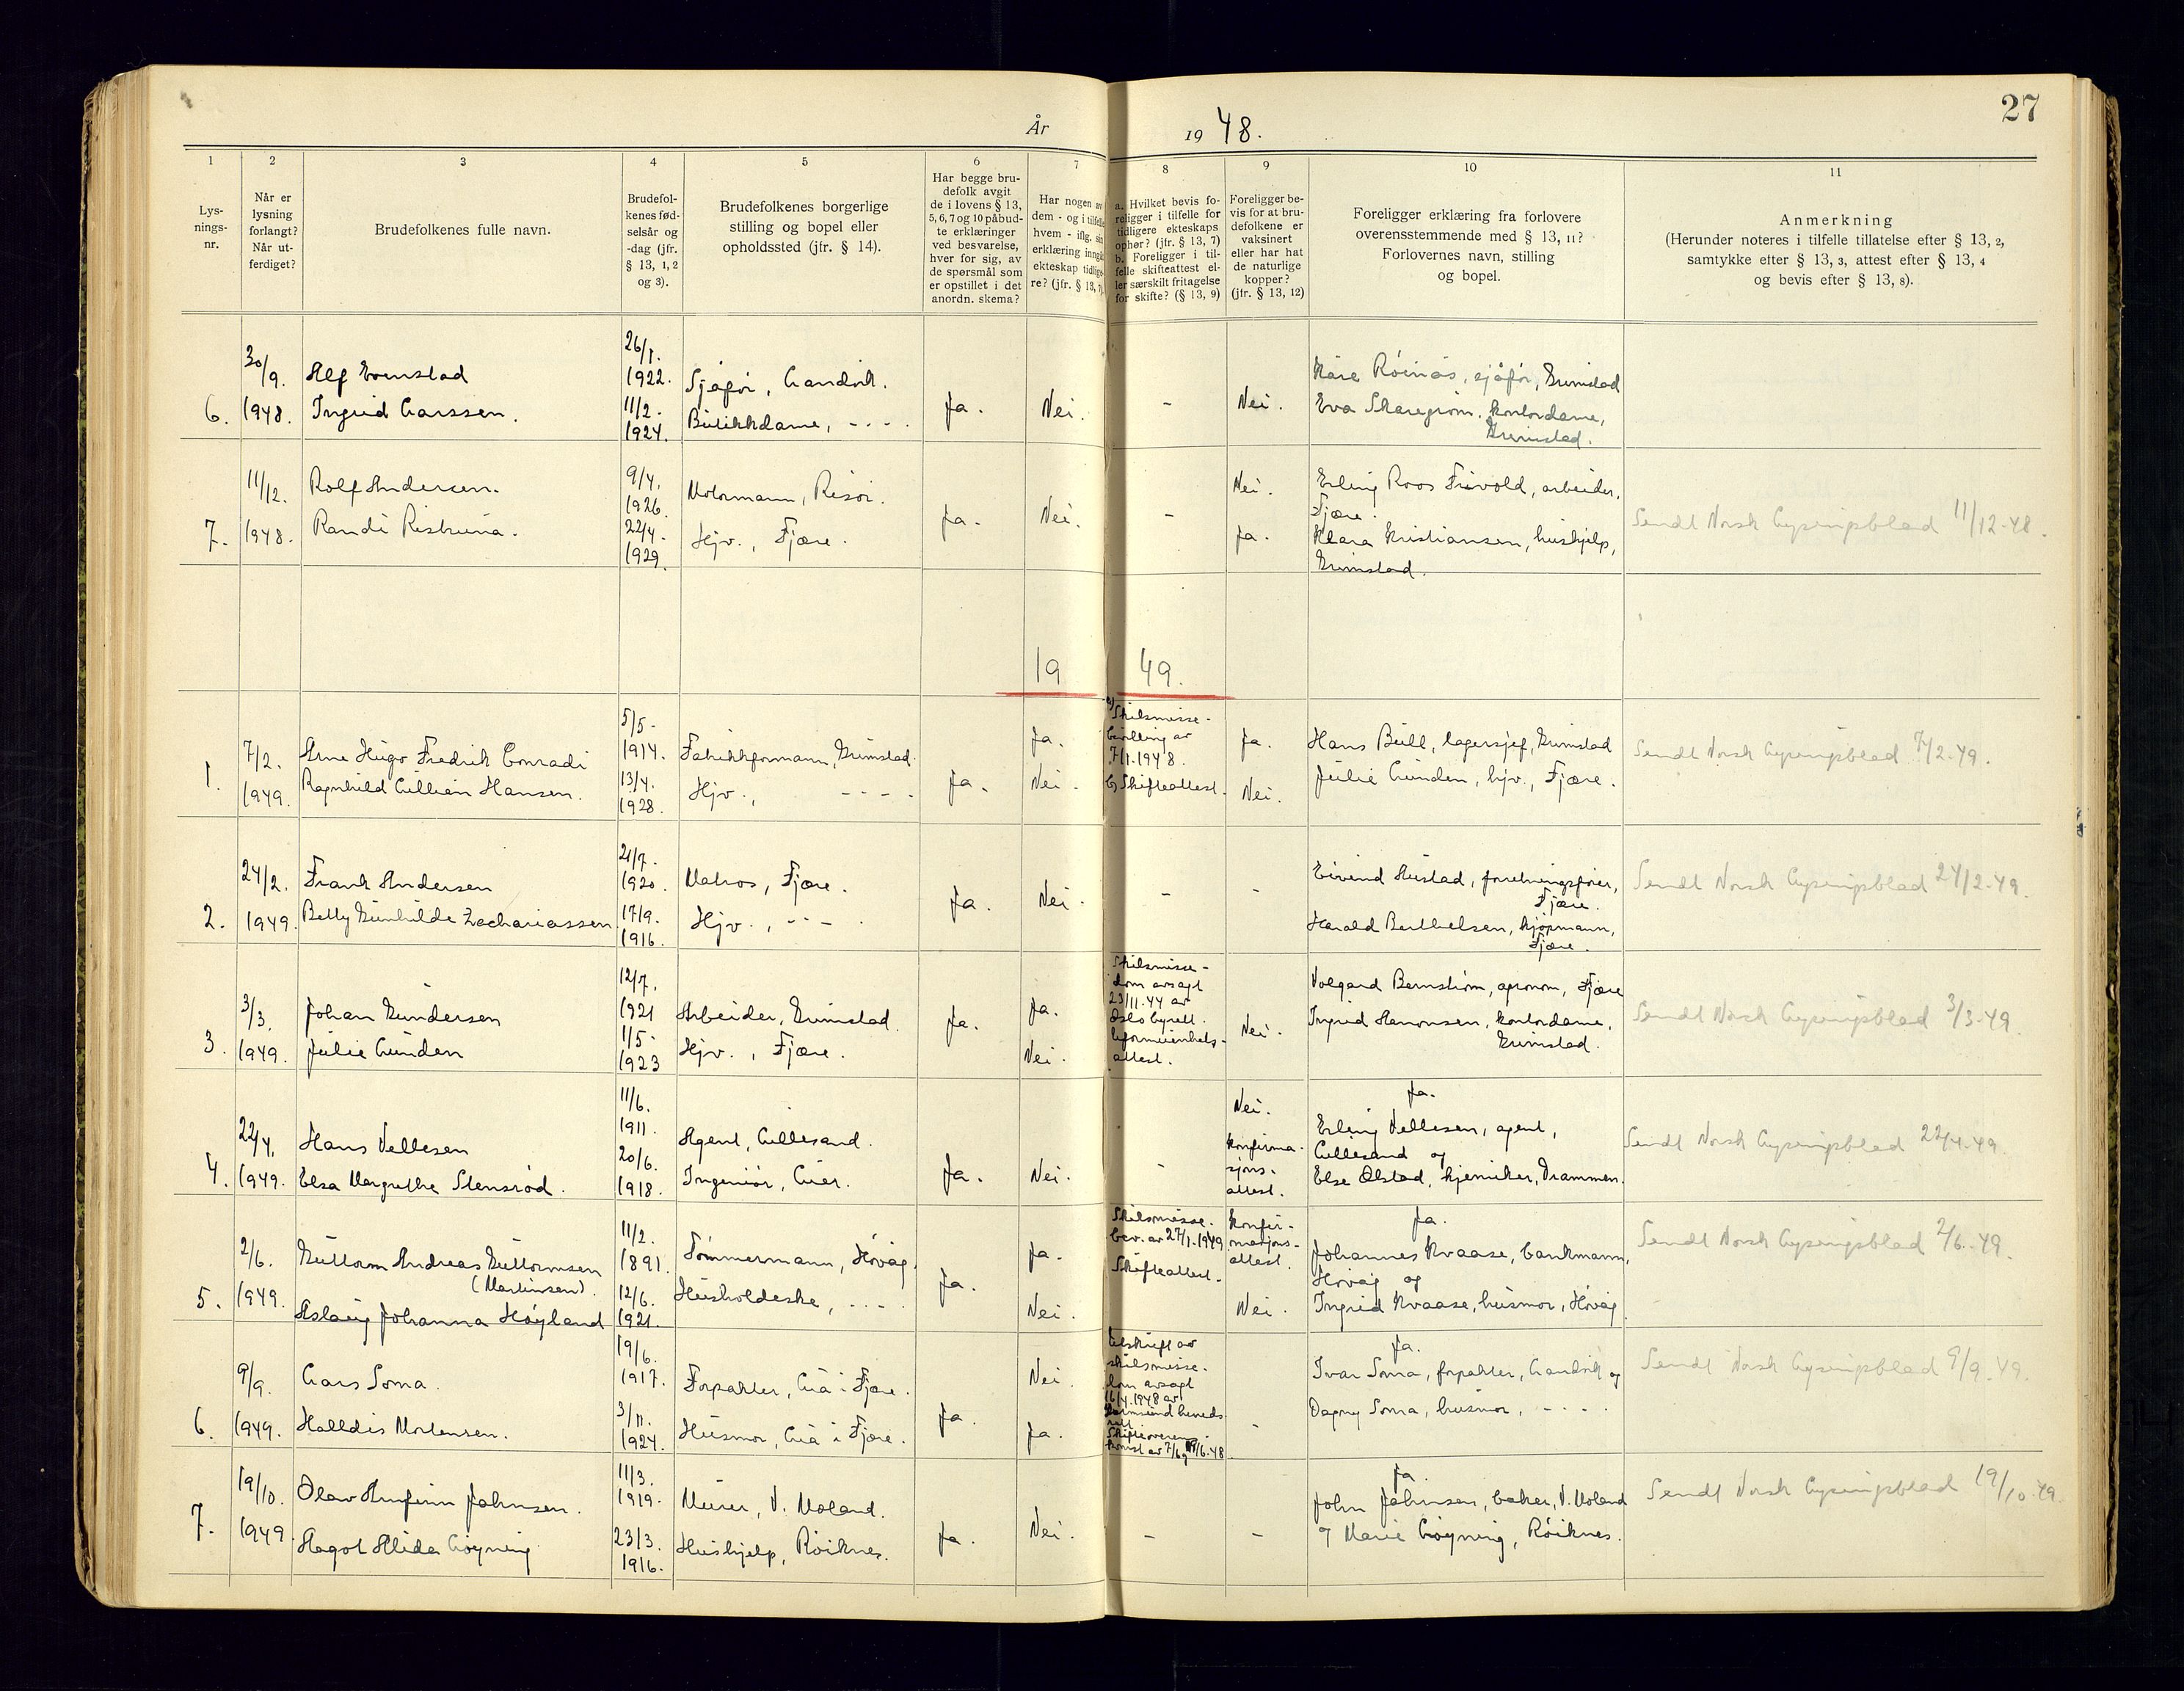 27
År 1948.
1 2 3 4 5 6 7 8 9 10 11
Lys-
nings-
nr.
Når er
lysning
forlangt?
Når ut-
ferdiget?
Brudefolkenes fulle navn.
Brudefol-
kenes fød-
selsår og
-dag (jfr.
§ 13, 1, 2
og 3).
Brudefolkenes borgerlige
stilling og bopel eller
opholdssted (jfr. § 14).
Har begge bru-
defolk avgit
de i lovens § 13,
5, 6, 7 og 10 påbud-
te erklæringer
ved besvarelse,
hver for sig, av
de spørsmål som
er opstillet i det
anordn. skema?
Har nogen av
dem - og i tilfelle
hvem - iflg. sin
erklæring inngåt
ekteskap tidlige-
re? (jfr. § 13, 7)
a. Hvilket bevis fo-
religger i tilfelle for
tidligere ekteskaps
ophør? (jfr. § 13, 7)
b. Foreligger i til-
felle skifteattest el-
ler særskilt fritagelse
for skifte? (§ 13, 9)
Foreligger be-
vis for at bru-
defolkene er
vaksinert
eller har hat
de naturlige
kopper?
(jfr. § 13, 12)
Foreligger erklæring fra forlovere
overensstemmende med § 13, 11?
Forlovernes navn, stilling
og bopel.
Anmerkning
(Herunder noteres i tilfelle tillatelse efter § 13, 2,
samtykke efter § 13, 3, attest efter § 13, 4
og bevis efter § 13, 8).
6.
30/9.
1948.
Alf Evenstad
Ingrid Larssen.
26/1.
1922.
11/2.
1924.
Sjåfør, Landvik.
Butikkdame, - - - .
Ja.
Nei.
-
Nei.
Kåre Röinås, sjåfør, Grimstad
Eva Skaregrøm, kontordame,
Grimstad.
7.
11/12.
1948.
Rolf Andersen.
Randi Ristruna.
9/4.
1926.
22/4.
1929.
Motormann, Risör.
Hjv., Fjære.
Ja.
Nei.
-
Nei.
Ja.
Erling Roos Frivold, arbeider,
Fjære.
Klara Kristiansen, hushjelp,
Grimstad.
Sendt Norsk Lysingsblad 11/12-48.
19 49.
1.
7/2.
1949.
Arne Hugo Fredrik Conradi
Ragnhild Lillian Hansen.
5/5-
1914.
13/4.
1928.
Fabrikkformann, Grimstad.
Hjv., - - - -
Ja.
Ja.
Nei.
a) Skilsmisse-
bevilling av
7/1.1948.
b) Skifteattest.
Ja.
Nei.
Hans Bull, lagersjef, Grimstad
Julie Lunden, hjv., Fjære.
Sendt Norsk Lysingsblad 7/2-49.
2.
24/2.
1949.
Frank Andersen
Betty Gunhilde Zachariassen
21/7.
1920.
17/9.
1916.
Matros, Fjære.
Hjv., - - - .
Ja.
Nei.
-
-
Eivind Hustad, forretningsfører,
Fjære.
Harald Berthelsen, kjøpmann,
Fjære.
Sendt Norsk Lysingsblad 24/2-49.
3.
3/3.
1949.
Johan Gundersen
Julie Lunden
12/7.
1921
11/5-
1923
Arbeider, Grimstad.
Hjv., Fjære.
Ja.
Ja.
Nei.
Skilsmisse-
dom avsagt
23/11.44 av
Oslo byrett.
Uformuenhets-
attest.
Nei.
Volgard Bernstrøm, agronom, Fjære
Ingrid Hanonsen, kontordame,
Grimstad.
Sendt Norsk Lysingsblad 3/3-49.
4.
22/4.
1949.
Hans Vellesen
Elsa Margrethe Stensrød.
11/6.
1911.
20/6.
1918.
Agent, Lillesand.
Ingeniör, Lier.
Ja.
Nei.
-
Nei.
Konfirma-
sjons-
attest.
Ja.
Erling Vellesen, agent,
Lillesand og
Else Ølstad, kjemiker, Drammen.
Sendt Norsk Lysingsblad 22/4-49.
5.
2/6.
1949.
Guttorm Andreas Guttormsen
(Martinsen).
Aslaug Johanna Høyland
11/2.
1891.
12/6.
1921.
Tömmermann, Hövåg.
Husholderske, - - - .
Ja.
Ja.
Nei.
Skilsmisse-
bev. av 27/1.1949
Skifteattest.
Konfir-
masjons-
attest.
Nei.
Ja.
Johannes Kvaase, bankmann,
Hövåg og
Ingrid Kvaase, husmor, Hövåg.
Sendt Norsk Lysingsblad 2/6-49.
6.
9/9.
1949.
Lars Soma.
Halldis Mortensen.
19/6.
1917.
3/11.
1924.
Forpakter, Lia i Fjære.
Husmor, Lia i Fjære.
Ja.
Nei.
Ja.
Utskrift av
skilsmisse-
dom avsagt
16/4.1948 av
Karmsund herreds-
rett.
Skifteoverens-
komst av 7/6 og 11/6-48.
-
Ja.
Ivar Soma, forpakter, Landvik og
Dagny Soma, husmor, - - - .
Sendt Norsk Lysingsblad 9/9-49.
7.
19/10.
1949.
Olav Arnfinn Jahnsen.
Aagot Alida Løgning
11/3.
1919.
23/3.
1916.
Murer, V. Moland.
Hushjelp, Röiknes.
Ja.
Nei.
-
-
Ja.
John Jahnsen, baker, V. Moland
og Marie Løgning, Röiknes.
Sendt Norsk Lysingsblad 19/10-49.